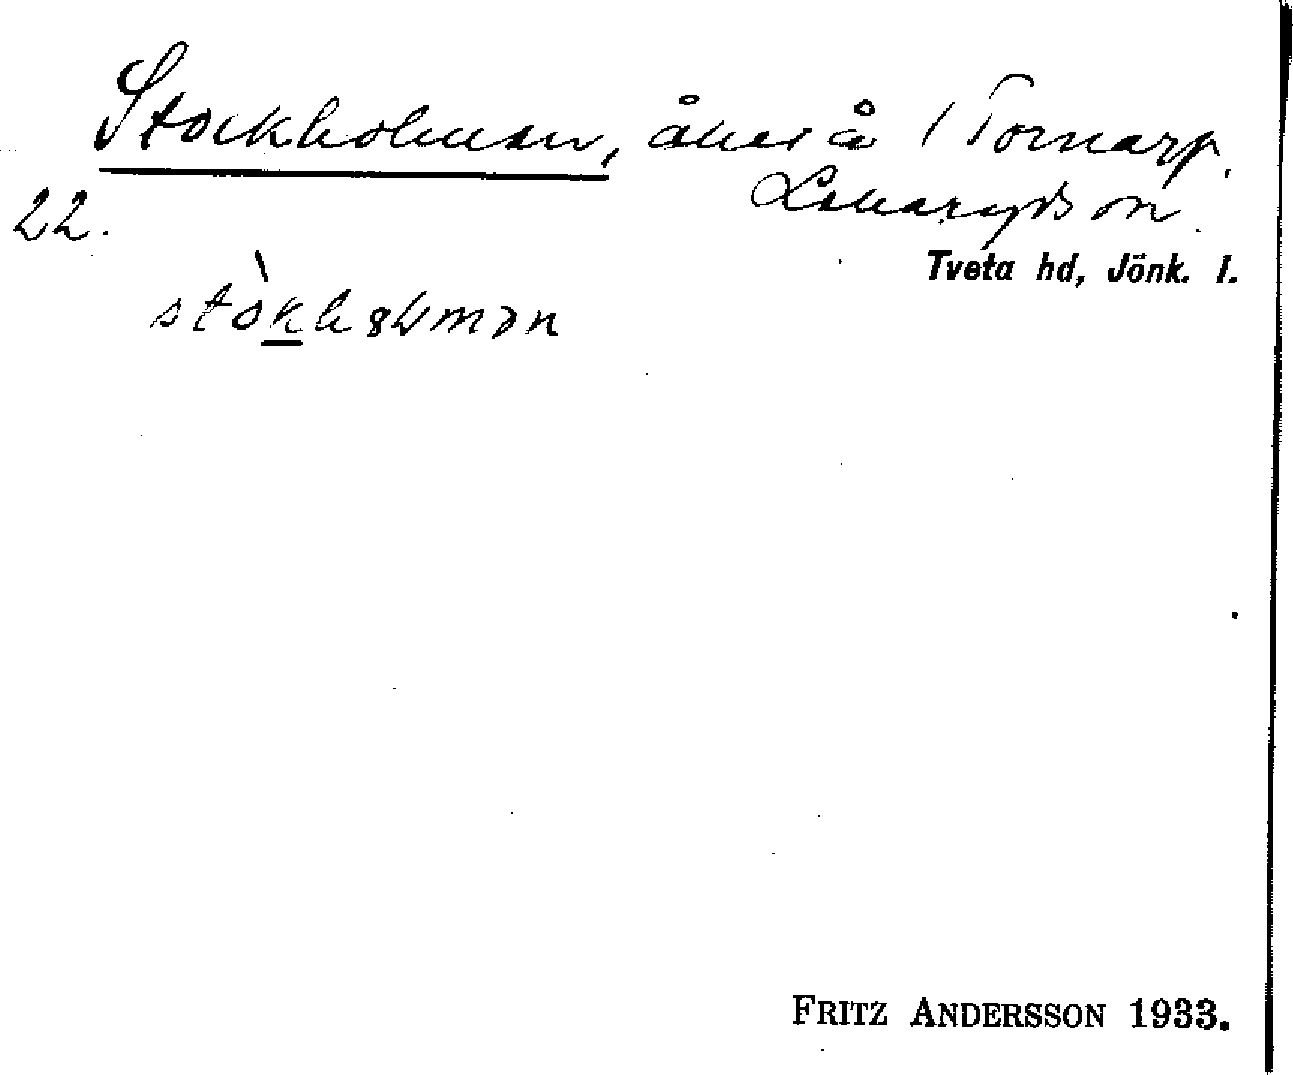 Stockholmen, åker å 1 Tornarp,
22. Lekeryds sn.
Tveta hd, Jönk. l.
stòkhɷlmən
FRITZ ANDERSSON 1933.